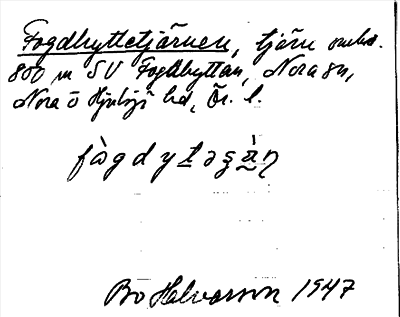 Fogdhyttetjärnen, tjärn omkr.
800 m SV Fogdhyttan, Nora sn,
Nora o Hjulsjö hd, Ör. l.
fògdytəʂæ̀ɳ
Bo Halvarson 1947